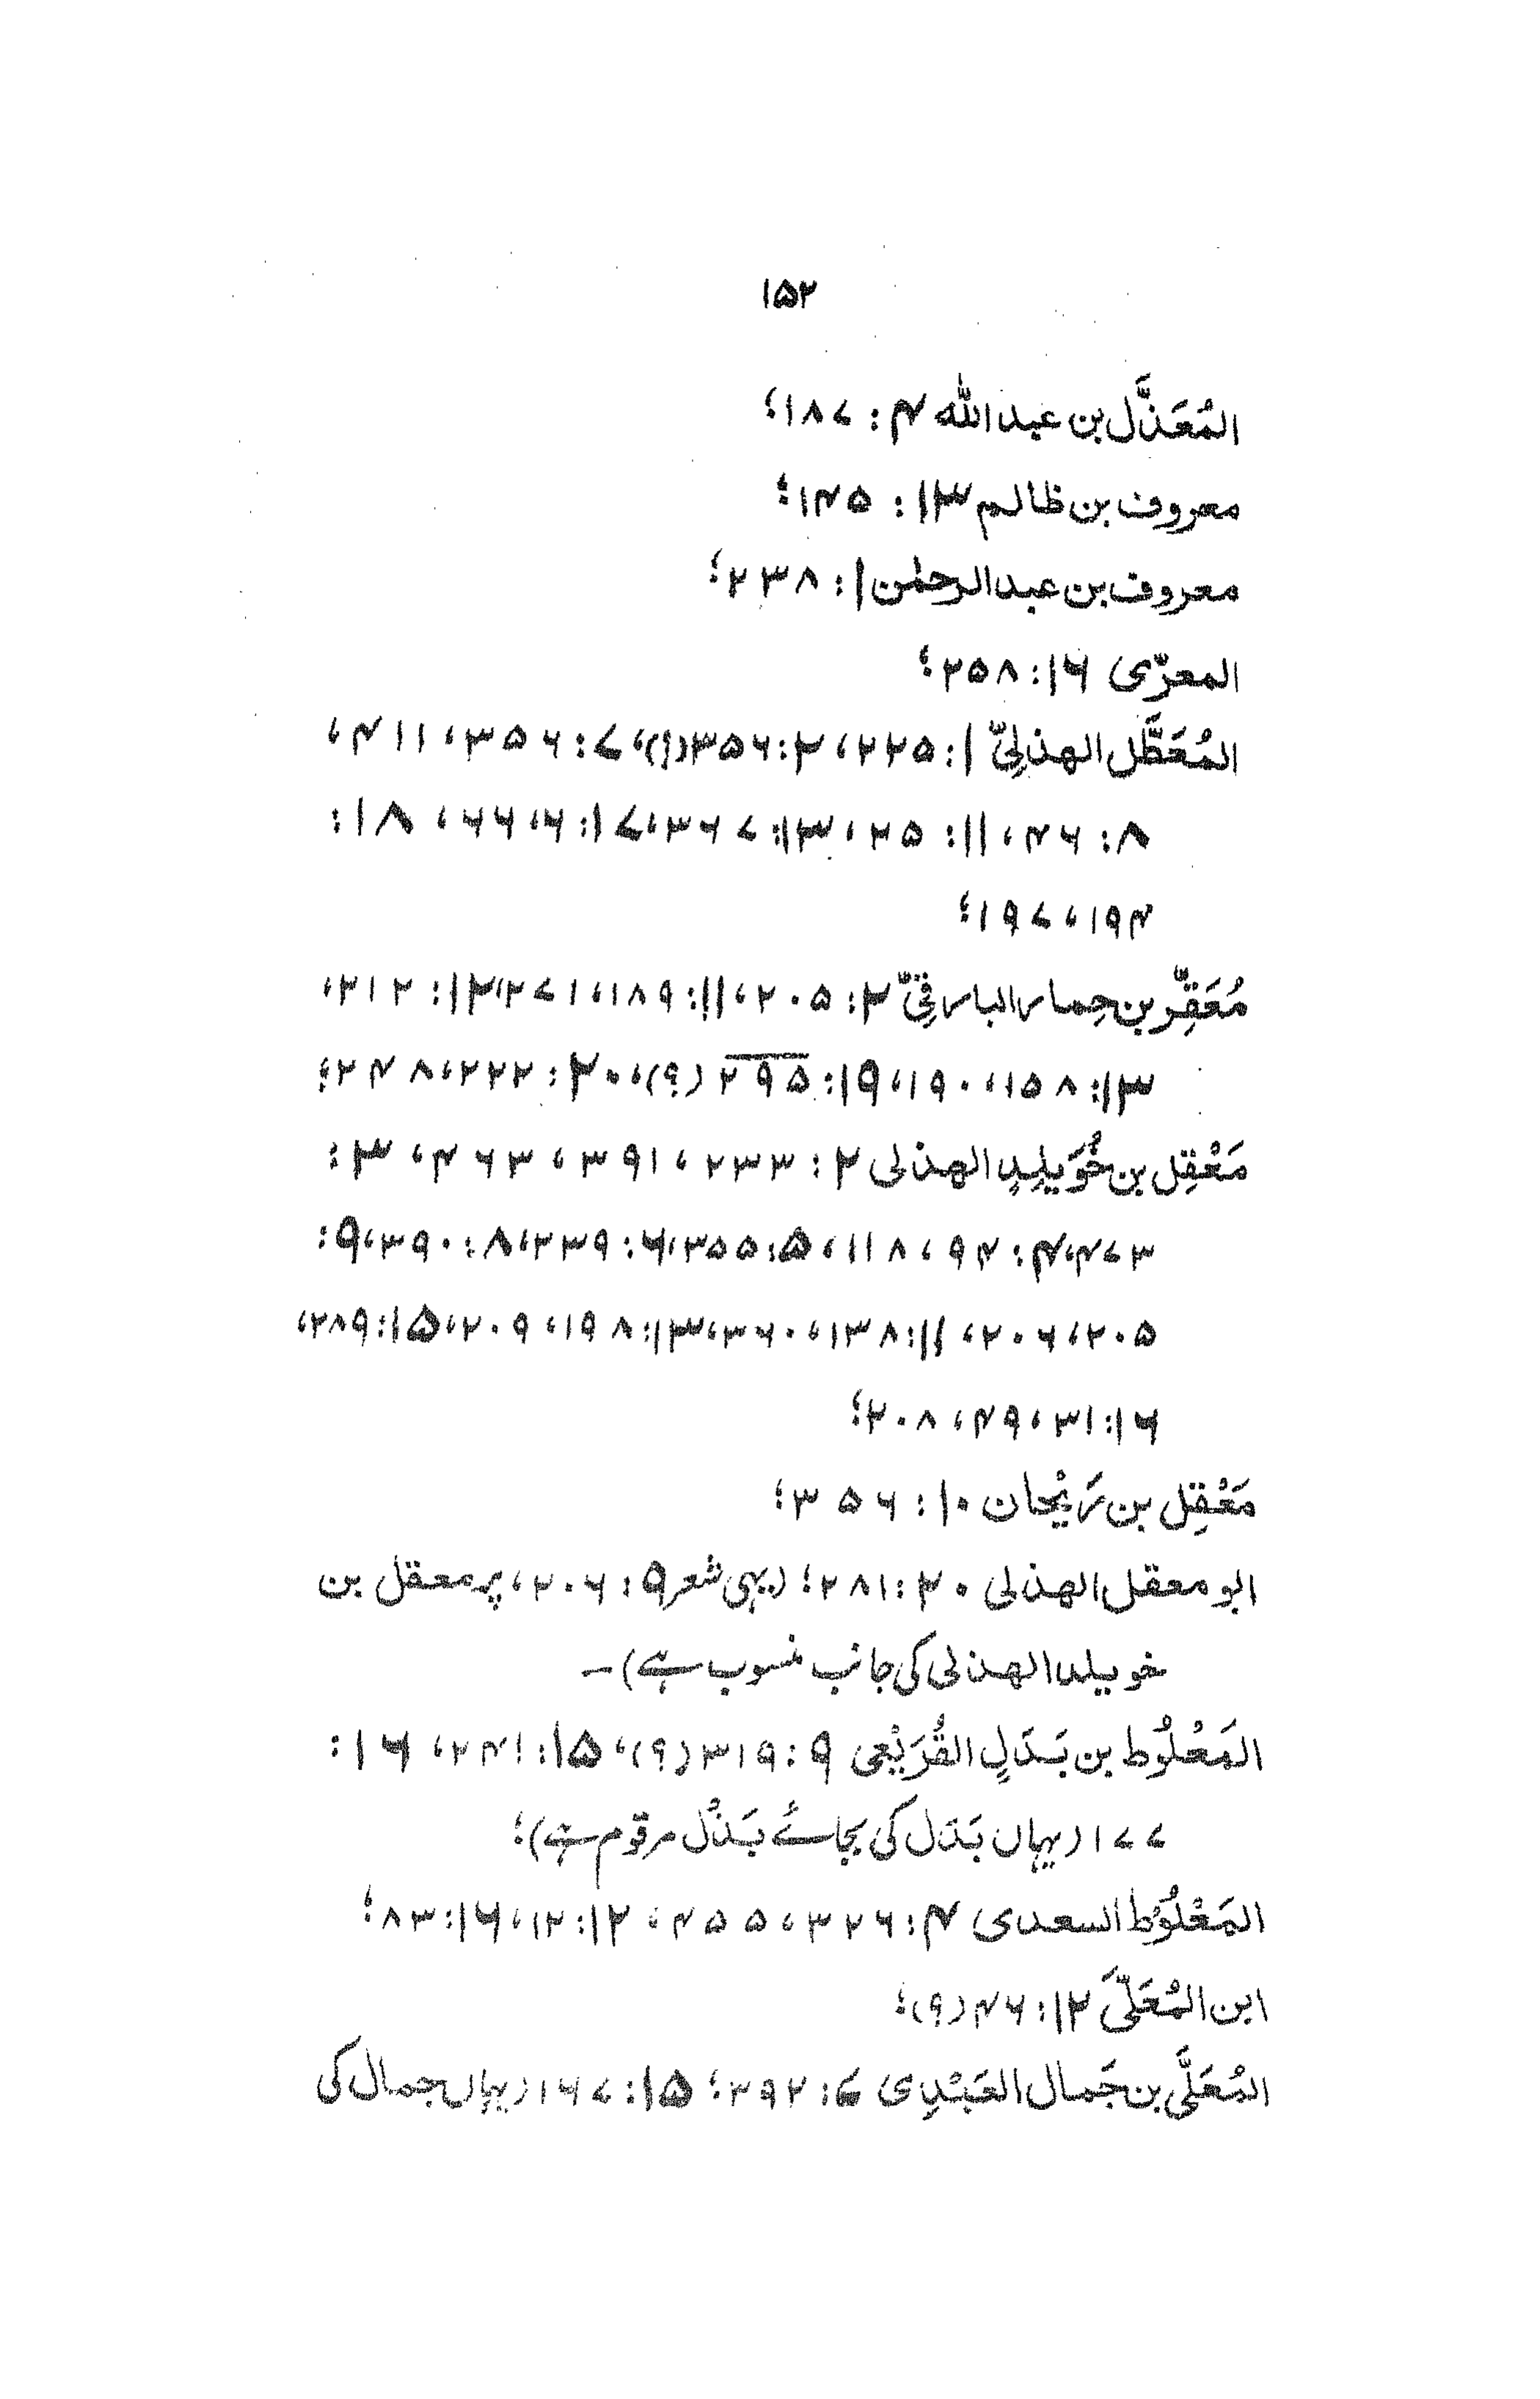 ۱۵۲
المُعَذَّل بن عبد اللّٰه ۴: ۱۸۷؛
معروف بن ظالم ۱۳: ۱۴۵؛
معروف بن عبد الرحمٰن ۱: ۲۳۸؛
المعرّی ۱۶: ۲۵۸؛
المُعَطَّل الهذلِیّ ۱: ۲۲۵، ۲: ۳۵۶(؟)، ۷: ۳۵۶، ۴۱۱،
۸: ۴۶، ۱۱: ۲۵، ۱۳: ۳۶۷، ۱۷: ۶، ۶۶، ۱۸:
۱۹۴، ۱۹۷؛
مُعَقِّر بن حِمار البارقِیّ ۲: ۲۰۵، ۱۱: ۱۸۹، ۲۷۱، ۱۲: ۲۱۲،
۱۳: ۱۵۸، ۱۹۰، ۱۹: ۲۹۵ (؟)، ۲۰: ۲۲۲، ۲۴۸؛
مَعْقِل بن خُوَیلِدٍ الهذلی ۲: ۲۳۳، ۳۹۱، ۴۶۳، ۳:
۴۷۳، ۴: ۹۴، ۱۱۸، ۵: ۳۵۵، ۶: ۲۳۹، ۸: ۳۹۰، ۹:
۲۰۵، ۲۰۶، ۱۱: ۱۳۸، ۳۶۰، ۱۳: ۱۹۸، ۲۰۹، ۱۵: ۲۸۹،
۱۶: ۳۱، ۴۹، ۲۰۸؛
مَعْقِل بن رَیْحان ۱۰: ۳۵۶؛
ابو معقل الهذلی ۲۰: ۲۸۱؛ (یہی شعر ۹: ۲۰۶، پر معقل بن
خویلد الهذلی کی جانب منسوب ہے)۔
المَعْلُوط بن بَدَلٍ القُرَیْعی ۹: ۳۱۹(؟)، ۱۵: ۲۴۱، ۱۶:
۱۷۷ (یہاں بَدَل کی بجائے بَذْل مرقوم ہے)؛
المَعْلُوط السعدی ۴: ۳۲۶، ۴۵۵، ۱۲: ۱۲، ۱۶: ۸۳؛
ابن المُعَلّیَ ۱۲: ۴۶(؟)؛
المُعَلَّی بن جَمال العَبْدِی ۶: ۳۹۲؛ ۱۵: ۱۶۷ (یہاں جمال کی